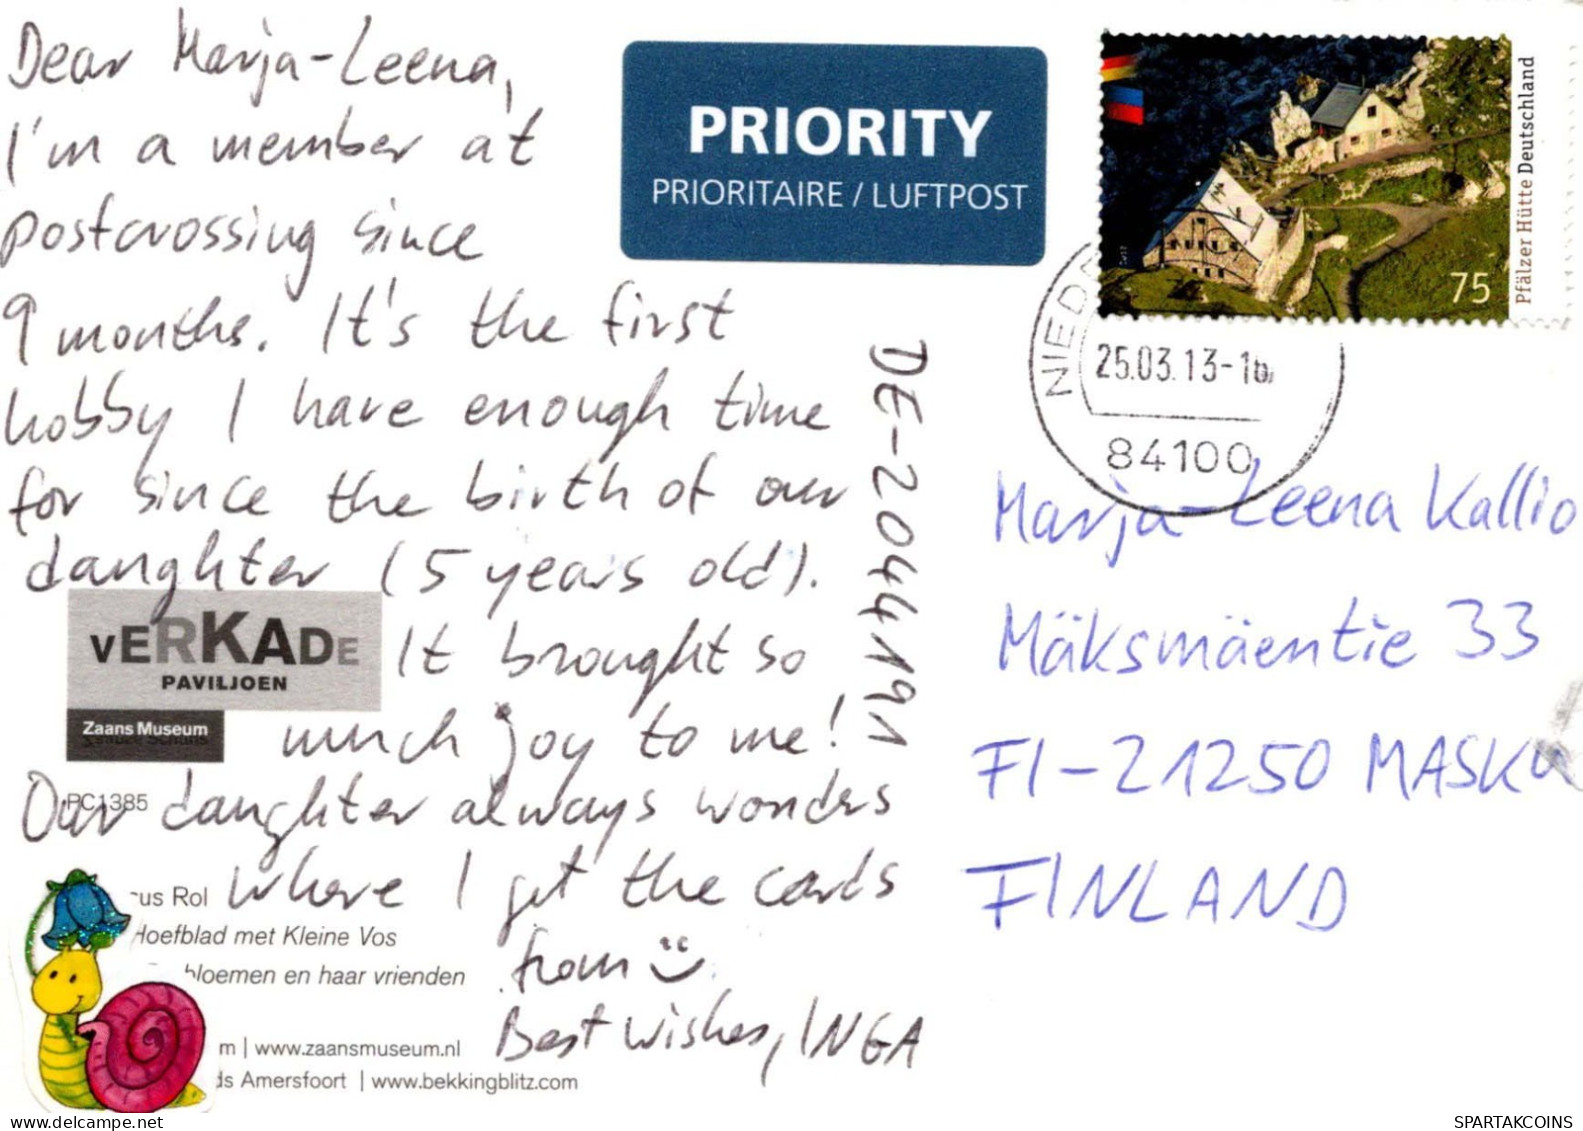 Dear Marja-Leena,
I'm a member at
postcrossing since
9 months. It's the first
hobby I have enough time
for since the birth of our
daughter (5 years old).
It brought so
much joy to me!
Our daughter always wonders
where I get the cards
from
Best wishes, INGA
DE-2044191
VERKADE
PAVILJOEN
Zaans Museum
PC1385
cus Rol
Hoefblad met Kleine Vos
bloemen en haar vrienden
m | www.zaansmuseum.nl
ds Amersfoort | www.bekkingblitz.com
PRIORITY
PRIORITAIRE / LUFTPOST
Pfälzer Hütte Deutschland
75
NIED
25.03.13-16
84100
Marja-Leena Kallio
Mäksmäentie 33
FI-21250 MASKU
FINLAND
delcampe.net
SPARTAKCOINS